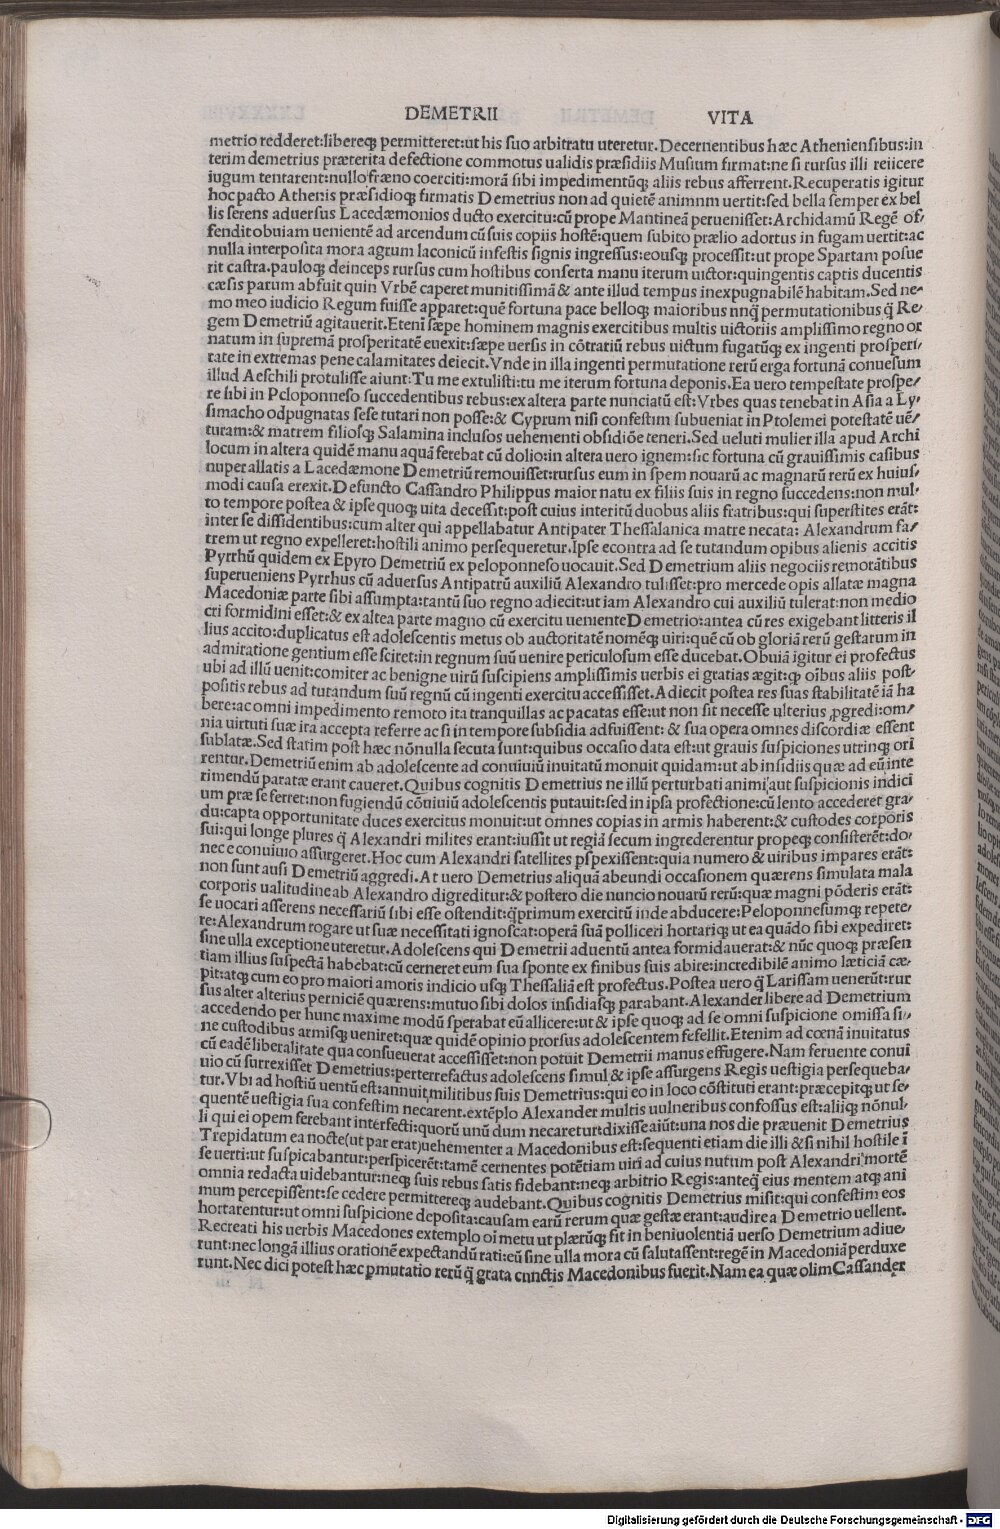 DEMETRII VITA
metrio redderet:libereq; permitteret:ut his suo arbitratu uteretur.Decernentibus hæc Atheniensibus:in
terim demetrius præterita defectione commotus ualidis præsidiis Musium firmat:ne si rursus illi reiicere
iugum tentarent:nullo fræno coerciti:morā sibi impedimentūq; aliis rebus afferrent.Recuperatis igitur
hoc pacto Athenis præsidioq; firmatis Demetrius non ad quietē animnm uertit:sed bella semper ex bel
lis serens aduersus Lacedæmonios ducto exercitu:cū prope Mantineā peruenisset:Archidamū Regē of/
fendit obuiam uenientē ad arcendum cū suis copiis hostē:quem subito prælio adortus in fugam uertit:ac
nulla interposita mora agrum laconicū infestis signis ingressus:eousq; processit:ut prope Spartam posue
rit castra.pauloq; deinceps rursus cum hostibus conserta manu iterum uictor:quingentis captis ducentis
cæsis parum abfuit quin Vrbē caperet munitissimā & ante illud tempus inexpugnabilē habitam.Sed ne/
mo meo iudicio Regum fuisse apparet:quē fortuna pace belloq; maioribus nnq̄ permutationibus q̄ Re/
gem Demetriū agitauerit.Etenī sæpe hominem magnis exercitibus multis uictoriis amplissimo regno or
natum in supremā prosperitatē euexit:sæpe uersis in cōtrariū rebus uictum fugatūq; ex ingenti prosperi/
tate in extremas pene calamitates deiecit.Vnde in illa ingenti permutatione rerū erga fortunā conuesum
illud Aeschili protulisse aiunt:Tu me extulisti:tu me iterum fortuna deponis.Ea uero tempestate prospe/
re sibi in Peloponneso succedentibus rebus:ex altera parte nunciatū est:Vrbes quas tenebat in Asia a Ly/
simacho odpugnatas sese tutari non posse:& Cyprum nisi confestim subueniat in Ptolemei potestatē uē/
turam:& matrem filiosq; Salamina inclusos uehementi obsidiōe teneri.Sed ueluti mulier illa apud Archi
locum in altera quidē manu aquā ferebat cū dolio:in altera uero ignem:sic fortuna cū grauissimis casibus
nuper allatis a Lacedæmone Demetriū remouisset:rursus eum in spem nouarū ac magnarū rerū ex huius/
modi causa erexit.Defuncto Cassandro Philippus maior natu ex filiis suis in regno succedens:non mul/
to tempore postea & ipse quoq; uita decessit:post cuius interitū duobus aliis fratribus:qui superstites erāt:
inter se dissidentibus:cum alter qui appellabatur Antipater Thessalanica matre necata: Alexandrum fa/
trem ut regno expelleret:hostili animo persequeretur.Ipse econtra ad se tutandum opibus alienis accitis
Pyrrhū quidem ex Epyro Demetriū ex peloponneso uocauit.Sed Demetrium aliis negociis remorātibus
superueniens Pyrrhus cū aduersus Antipatrū auxiliū Alexandro tulisset:pro mercede opis allatæ magna
Macedoniæ parte sibi assumpta:tantū suo regno adiecit:ut iam Alexandro cui auxiliū tulerat:non medio
cri formidini esset:& ex altea parte magno cū exercitu ueniente Demetrio:antea cū res exigebant litteris il
lius accito:duplicatus est adolescentis metus ob auctoritatē nomēq; uiri:quē cū ob gloriā rerū gestarum in
admiratione gentium esse sciret:in regnum suū uenire periculosum esse ducebat.Obuiā igitur ei profectus
ubi ad illū uenit:comiter ac benigne uirū suscipiens amplissimis uerbis ei gratias ægit:q; oībus aliis post/
positis rebus ad tutandum suū regnū cū ingenti exercitu accessisset.Adiecit postea res suas stabilitatē iā ha
bere:ac omni impedimento remoto ita tranquillas ac pacatas esse:ut non sit necesse ulterius ꝓgredi:om/
nia uirtuti suæ ita accepta referre ac si in tempore subsidia adfuissent: & sua opera omnes discordiæ essent
sublatæ.Sed statim post hæc nōnulla secuta sunt:quibus occasio data est:ut grauis suspiciones utrinq; ori
rentur.Demetriū enim ab adolescente ad conuiuiū inuitatū monuit quidam:ut ab insidiis quæ ad eū inte
rimendū paratæ erant caueret.Quibus cognitis Demetrius ne illū perturbati animi,aut suspicionis indici
um præ se ferret:non fugiendū cōuiuiū adolescentis putauit:sed in ipsa profectione:cū lento accederet gra/
du:capta opportunitate duces exercitus monuit:ut omnes copias in armis haberent:& custodes corporis
sui:qui longe plures q̄ Alexandri milites erant:iussit ut regiā secum ingrederentur propeq; consisterēt:do/
nec e conuiuio assurgeret.Hoc cum Alexandri satellites ꝑspexissent:quia numero & uiribus impares erāt:
non sunt ausi Demetriū aggredi.At uero Demetrius aliquā abeundi occasionem quærens simulata mala
corporis ualitudine ab Alexandro digreditur:& postero die nuncio nouarū rerū:quæ magni pōderis erāt:
se uocari asserens necessariū sibi esse ostendit:q̄primum exercitū inde abducere:Peloponnesumq; repete/
re:Alexandrum rogare ut suæ necessitati ignoscat:operā suā polliceri hortariq; ut ea quādo sibi expediret:
sine ulla exceptione uteretur.Adolescens qui Demetrii aduentū antea formidauerat:& nūc quoq; præsen
tiam illius suspectā habebat:cū cerneret eum sua sponte ex finibus suis abire:incredibilē animo læticiā cæ/
pit:atq; cum eo pro maiori amoris indicio usq; Thessaliā est profectus.Postea uero q̄ Larissam uenerūt:rur
sus alter alterius perniciē quærens:mutuo sibi dolos insidiasq; parabant.Alexander libere ad Demetrium
accedendo per hunc maxime modū sperabat eū allicere:ut & ipse quoq; ad se omni suspicione omissa si/
ne custodibus armisq; ueniret:quæ quidē opinio prorsus adolescentem fefellit.Etenim ad cœnā inuitatus
cū eadē liberalitate qua consueuerat accessisset:non potuit Demetrii manus effugere.Nam feruente conui
uio cū surrexisset Demetrius:perterrefactus adolescens simul & ipse assurgens Regis uestigia persequeba/
tur.Vbi ad hostiū uentū est:annuit militibus suis Demetrius:qui eo in loco cōstituti erant:præcepitq; ut se/
quentē uestigia sua confestim necarent.extēplo Alexander multis uulneribus confossus est:aliiq; nōnul/
li qui ei opem ferebant interfecti:quorū unū dum necaretur:dixisse aiūt:una nos die præuenit Demetrius
Trepidatum ea nocte(ut par erat)uehementer a Macedonibus est:sequenti etiam die illi & si nihil hostile ī
se uerti:ut suspicabantur:perspicerēt:tamē cernentes potētiam uiri ad cuius nutum post Alexandri mortē
omnia redacta uidebantur:neq; suis rebus satis fidebant:neq; arbitrio Regis:anteq̄ eius mentem atq; ani
mum percepissent:se cedere permittereq; audebant.Quibus cognitis Demetrius misit:qui confestim eos
hortarentur:ut omni suspicione deposita:causam earū rerum quæ gestæ erant:audire a Demetrio uellent.
Recreati his uerbis Macedones extemplo oī metu ut plærūq; fit in beniuolentiā uerso Demetrium adiue/
runt:nec longā illius orationē expectandū rati:eū sine ulla mora cū salutassent:regē in Macedoniā perduxe
runt.Nec dici potest hæc ꝑmutatio rerū q̄ grata cunctis Macedonibus fuerit.Nam ea quæ olim Cassander
Digitalisierung gefördert durch die Deutsche Forschungsgemeinschaft - DFG